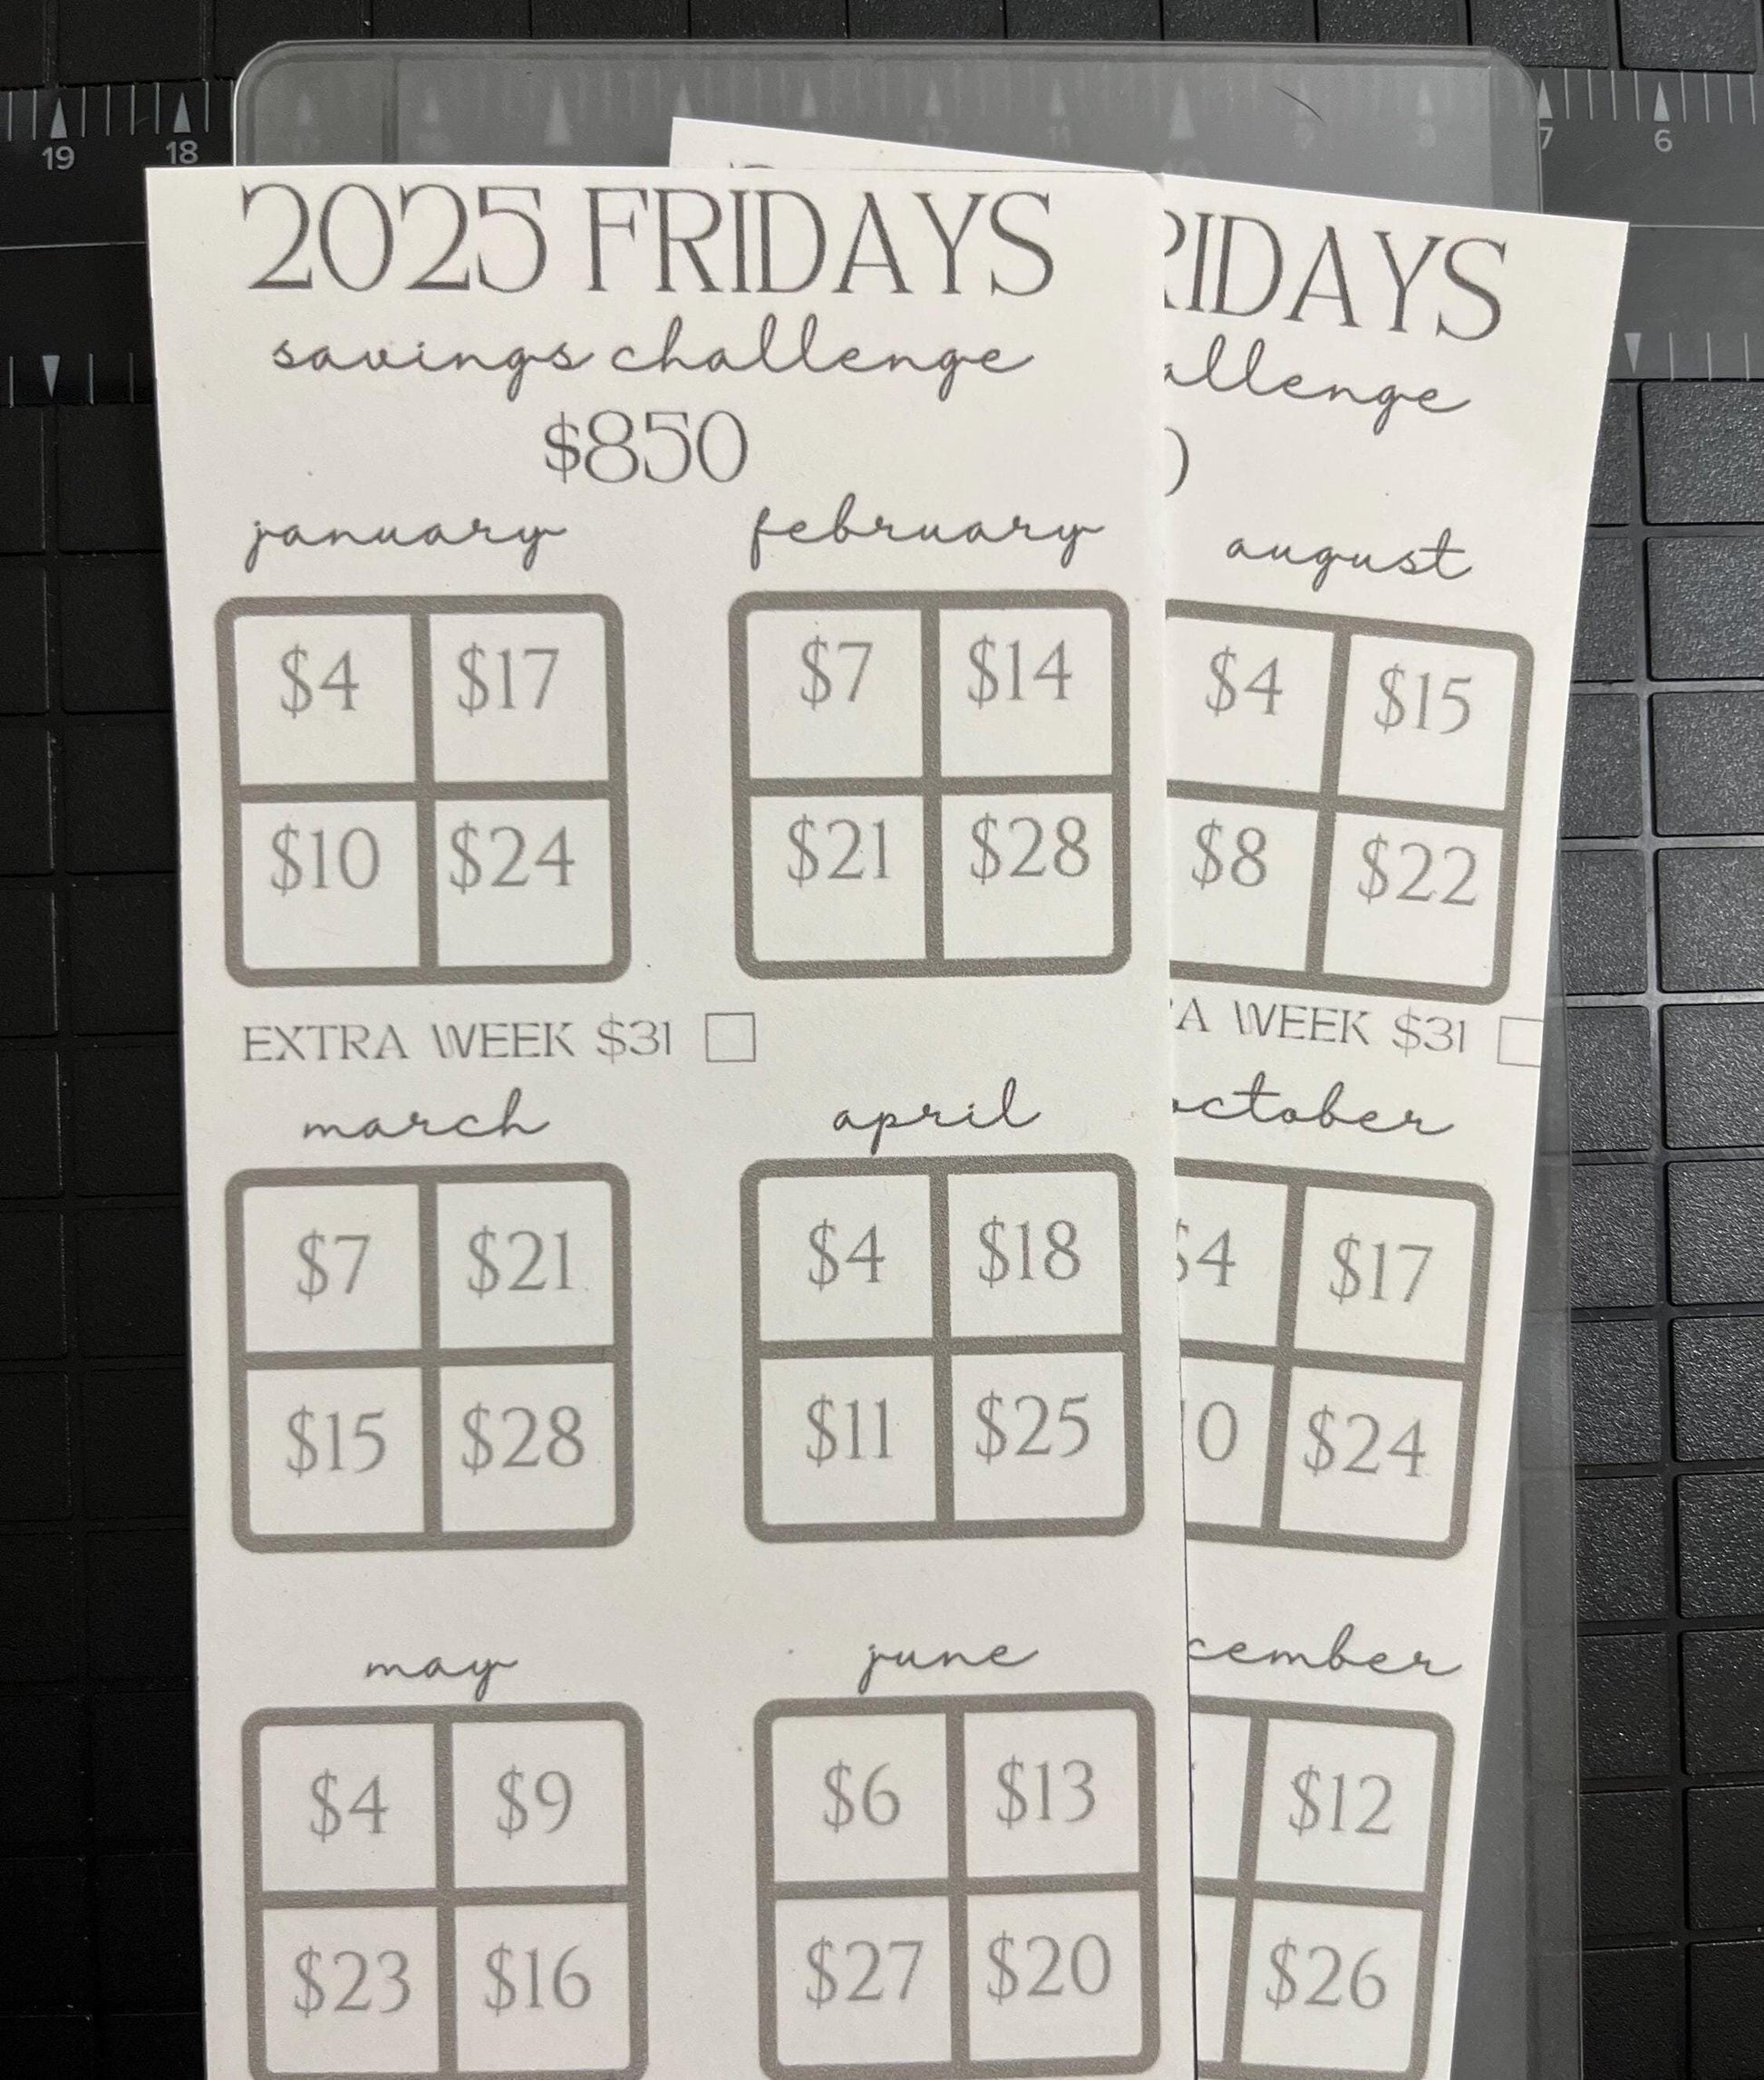 19 18 7 6
2025 FRIDAYS
savings challenge
$850
january february
$4 $17 $7 $14
$10 $24 $21 $28
EXTRA WEEK $31
march april
$7 $21 $4 $18
$15 $28 $11 $25
may june
$4 $9 $6 $13
$23 $16 $27 $20
RIDAYS
allenge
august
$4 $15
$8 $22
A WEEK $31
october
$4 $17
10 $24
cember
$12
$26